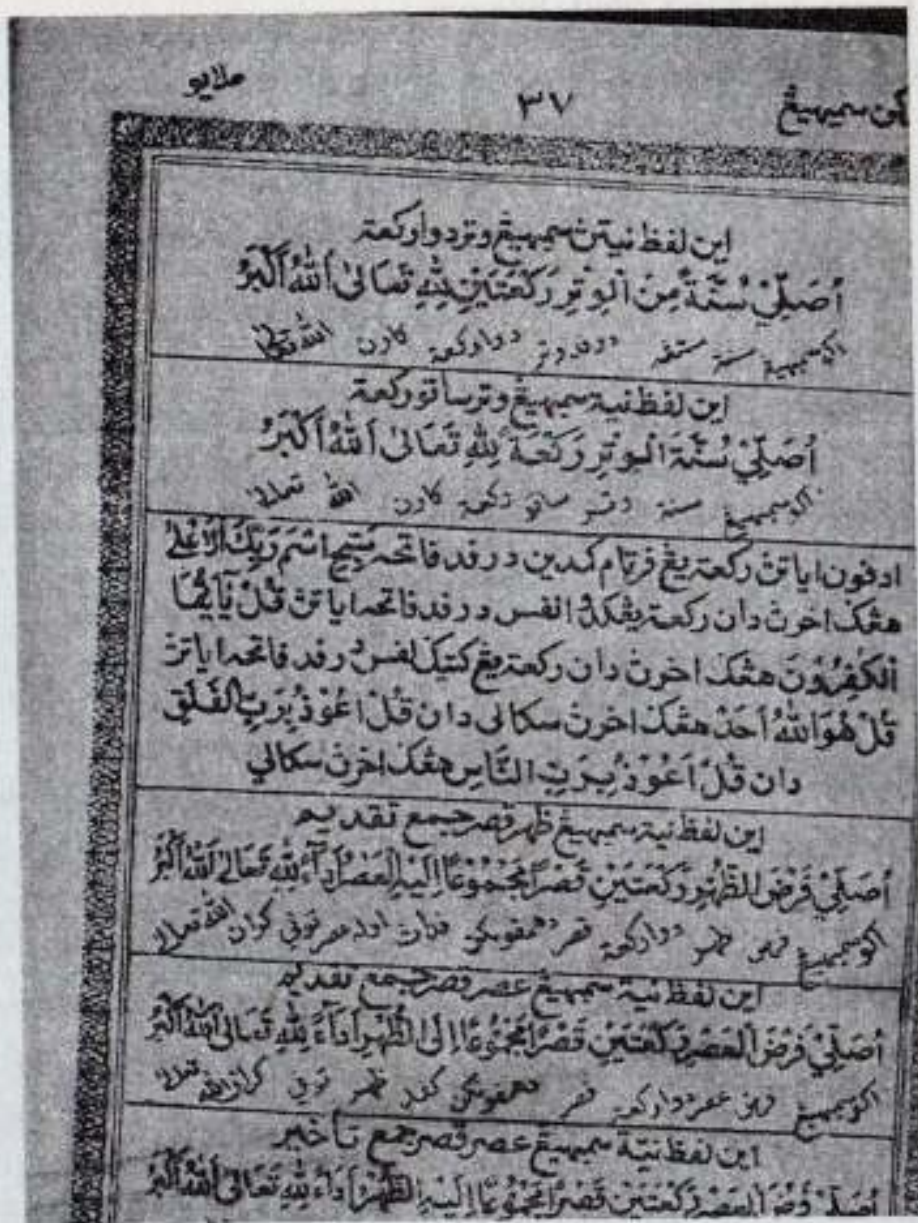 سمبهيڠ ٣٧ ملايو
اين لفظ نيتڽ سمبهيڠ وتر دوا ركعة
اُصَلِّيْ سُنَّةً مِنَ الْوِتْرِ رَكْعَتَيْنِ لِلّٰهِ تَعَالىٰ اَللّٰهُ اَكْبَرُ
اكو سمبهيڠ سنة درفد وتر دوا ركعة كارن الله تعالى
اين لفظ نية سمبهيڠ وتر ساتو ركعة
اُصَلِّيْ سُنَّةَ الْوِتْرِ رَكْعَةً لِلّٰهِ تَعَالىٰ اَللّٰهُ اَكْبَرُ
اكو سمبهيڠ سنة وتر ساتو ركعة كارن الله تعالى
ادفون اياتڽ ركعة يڠ فرتام كمدين درفد فاتحه سَبِّحِ اسْمَ رَبِّكَ الْاَعْلىٰ
هڠݢ اخرڽ دان ركعة يڠكدوا لفس درفد فاتحه اياتڽ قُلْ يٰٓاَيُّهَا
الْكٰفِرُوْنَ هڠݢ اخرڽ دان ركعة يڠ كتيݢ لفس درفد فاتحه اياتڽ
قُلْ هُوَ اللّٰهُ اَحَدٌ هڠݢ اخرڽ سكالي دان قُلْ اَعُوْذُ بِرَبِّ الْفَلَقِ
دان قُلْ اَعُوْذُ بِرَبِّ النَّاسِ هڠݢ اخرڽ سكالي
اين لفظ نية سمبهيڠ ظهر قصر جمع تقديم
اُصَلِّيْ فَرْضَ الظُّهْرِ رَكْعَتَيْنِ قَصْرًا مَجْمُوْعًا اِلَيْهِ الْعَصْرُ اَدَآءً لِلّٰهِ تَعَالىٰ اَللّٰهُ اَكْبَرُ
اكو سمبهيڠ فرض ظهر دوا ركعة قصر دهمفونكن عصر توني كران الله تعالى
اين لفظ نية سمبهيڠ عصر قصر جمع تقديم
اُصَلِّيْ فَرْضَ الْعَصْرِ رَكْعَتَيْنِ قَصْرًا مَجْمُوْعًا اِلَى الظُّهْرِ اَدَآءً لِلّٰهِ تَعَالىٰ اَللّٰهُ اَكْبَرُ
اكو سمبهيڠ فرض عصر دوا ركعة قصر دهمفونكن كفد ظهر توني كران الله تعالى
اين لفظ نية سمبهيڠ عصر قصر جمع تأخير
اُصَلِّيْ فَرْضَ الْعَصْرِ رَكْعَتَيْنِ قَصْرًا مَجْمُوْعًا اِلَيْهِ الظُّهْرُ اَدَآءً لِلّٰهِ تَعَالىٰ اَللّٰهُ اَكْبَرُ